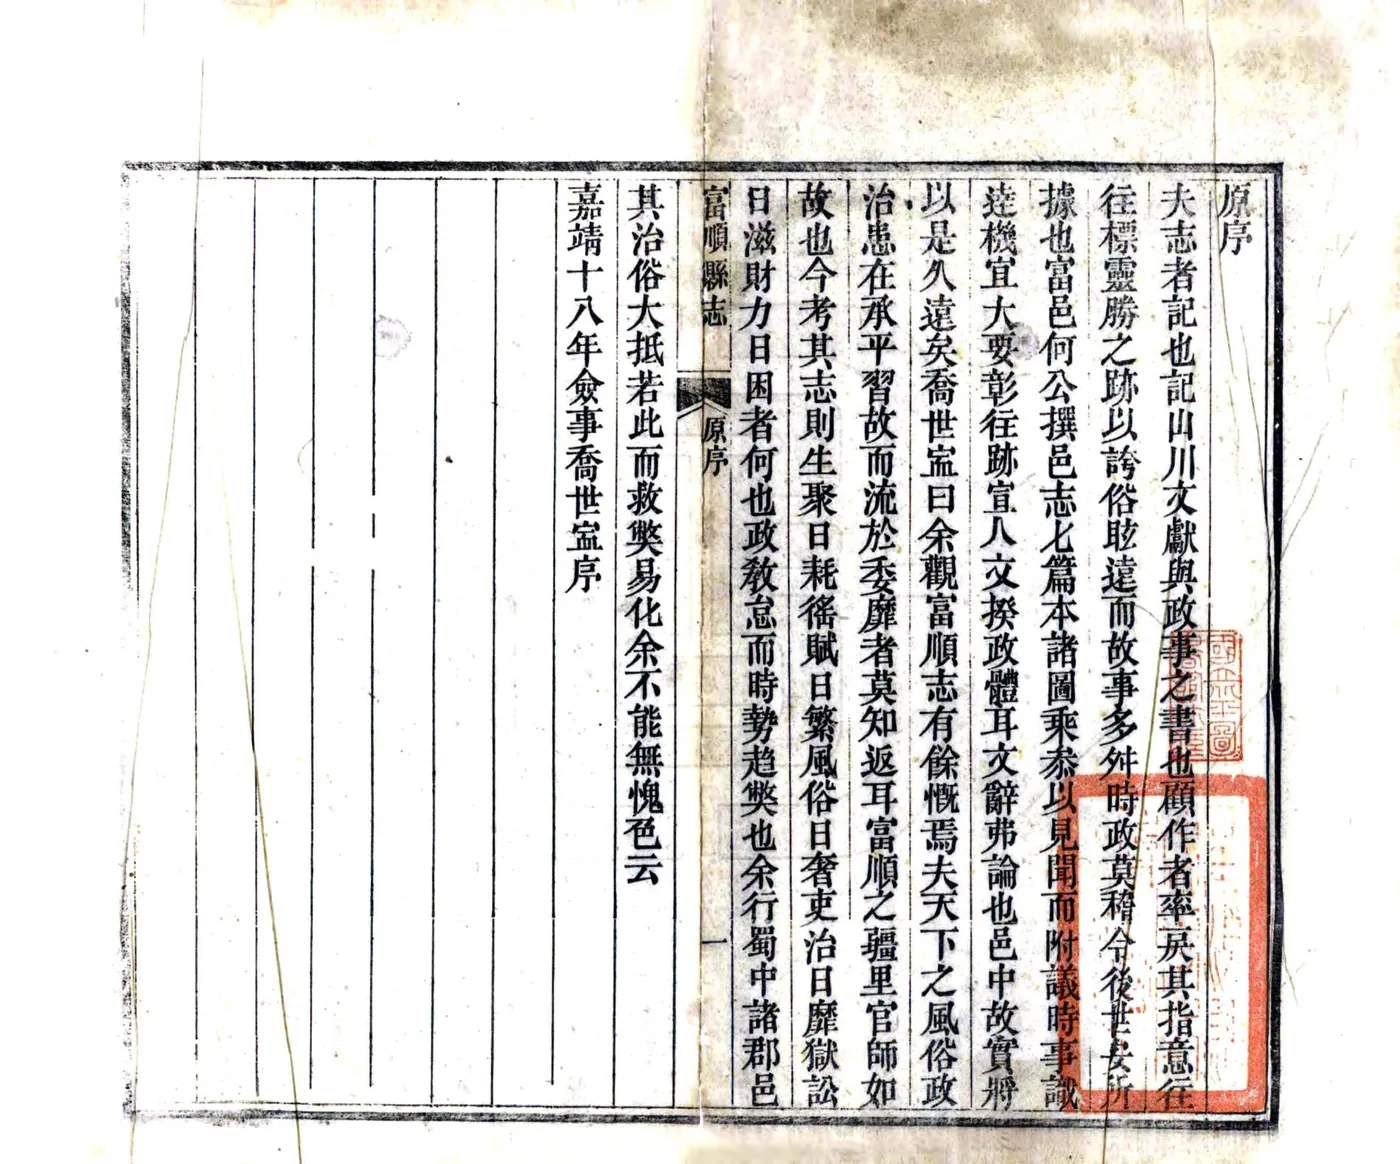 原序
夫志者記也記山川文獻與政事之書也顧作者率戾其指意往
往標靈勝之跡以誇俗眩遠而故事多舛時政莫稽令後世安所
據也富邑何公撰邑志七篇本諸圖乘叅以見聞而附議時事識
達機宜大要彰往跡宣人文揆政體耳文辭弗論也邑中故實將
以是久遠矣喬世寍曰余觀富順志有餘慨焉夫天下之風俗政
治患在承平習故而流於委靡者莫知返耳富順之疆里官師如
故也今考其志則生聚日耗徭賦日繁風俗日奢吏治日靡獄訟
日滋財力日困者何也政敎怠而時勢趋獘也余行蜀中諸郡邑
富順縣志 原序 一
其治俗大抵若此而救獘易化余不能無愧色云
嘉靖十八年僉事喬世寍序